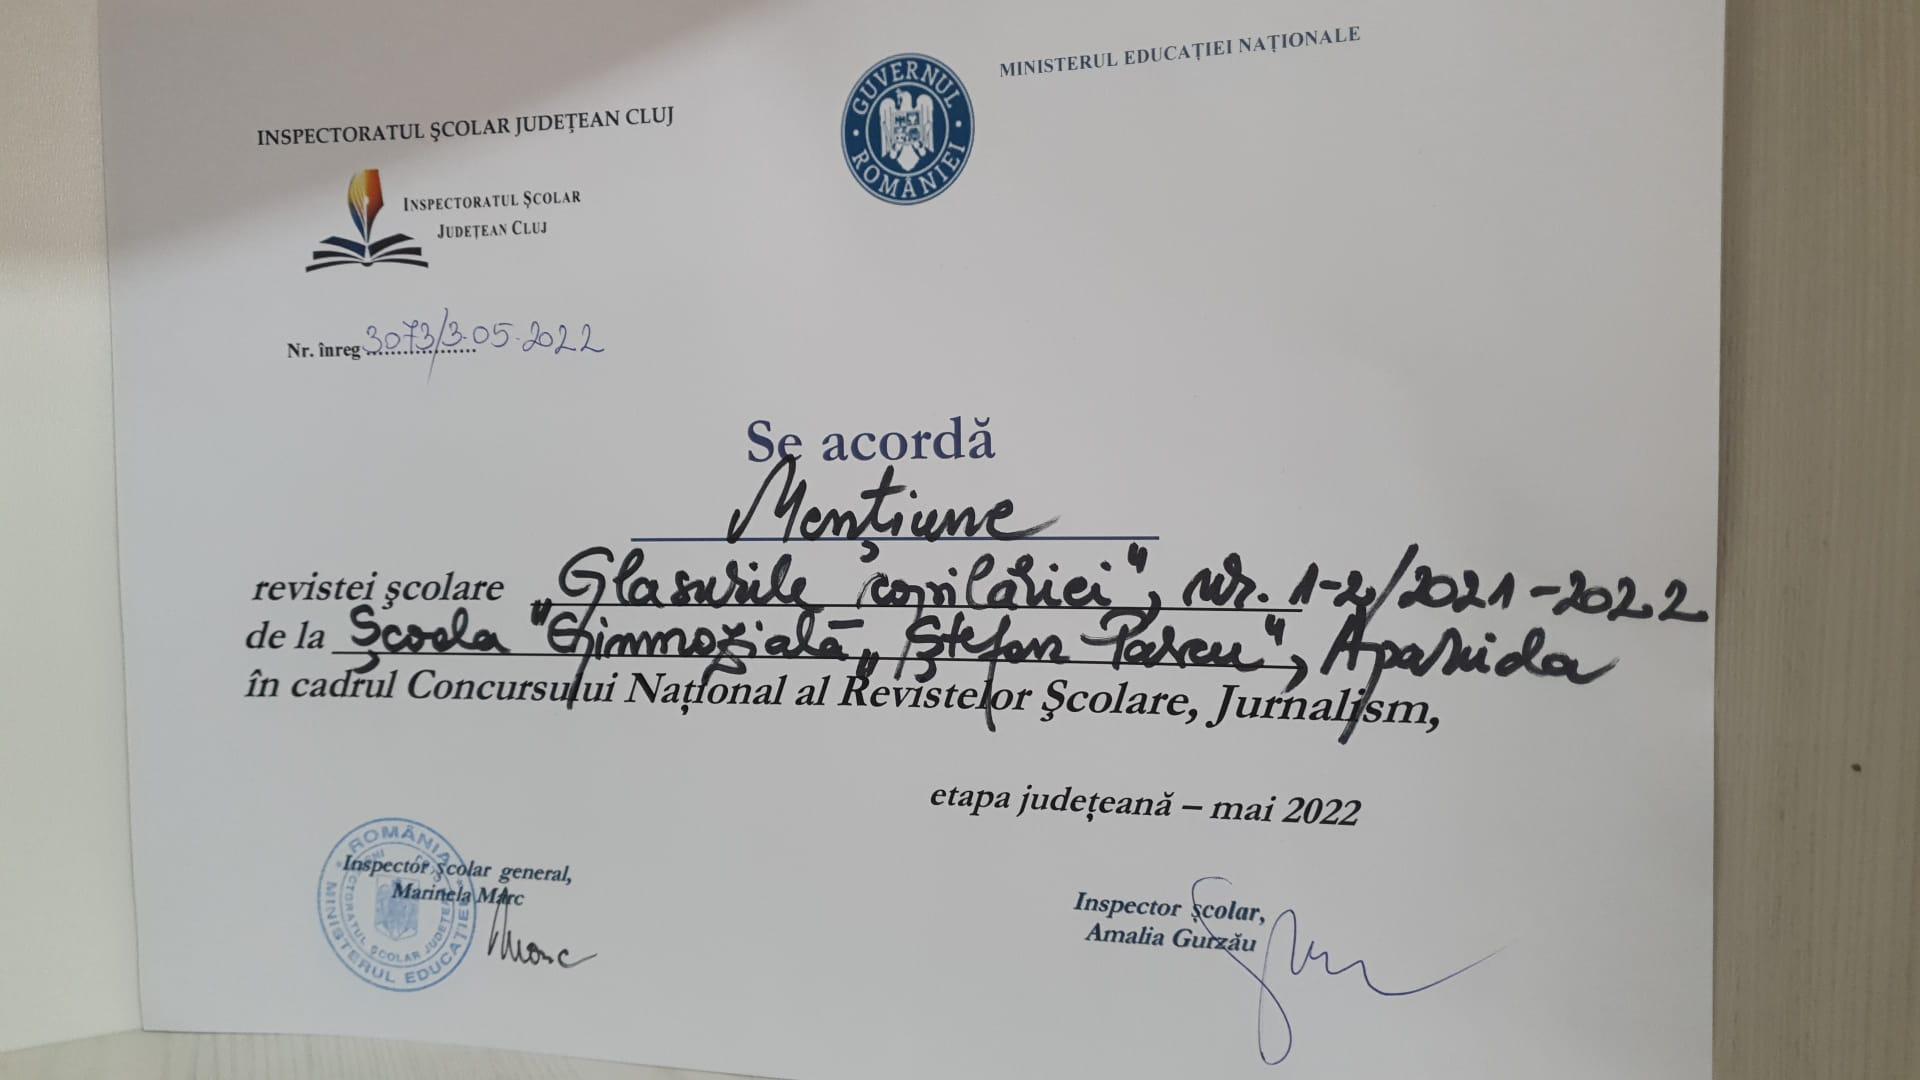 MINISTERUL EDUCAȚIEI NAȚIONALE
GUVERNUL ROMÂNIEI
INSPECTORATUL ŞCOLAR JUDEȚEAN CLUJ
INSPECTORATUL ŞCOLAR
JUDEȚEAN CLUJ
Nr. înreg 3073/3.05.2022
Se acordă
Mențiune
revistei şcolare „Glasurile copilăriei", nr. 1-2/2021-2022
de la Școala Gimnazială „Ştefan Pascu", Apahida
în cadrul Concursului Național al Revistelor Şcolare, Jurnalism,
etapa județeană – mai 2022
Inspector şcolar general,
Marinela Marc
ROMÂNIA
MINISTERUL EDUCAȚIEI
Inspector școlar,
Amalia Gurzău